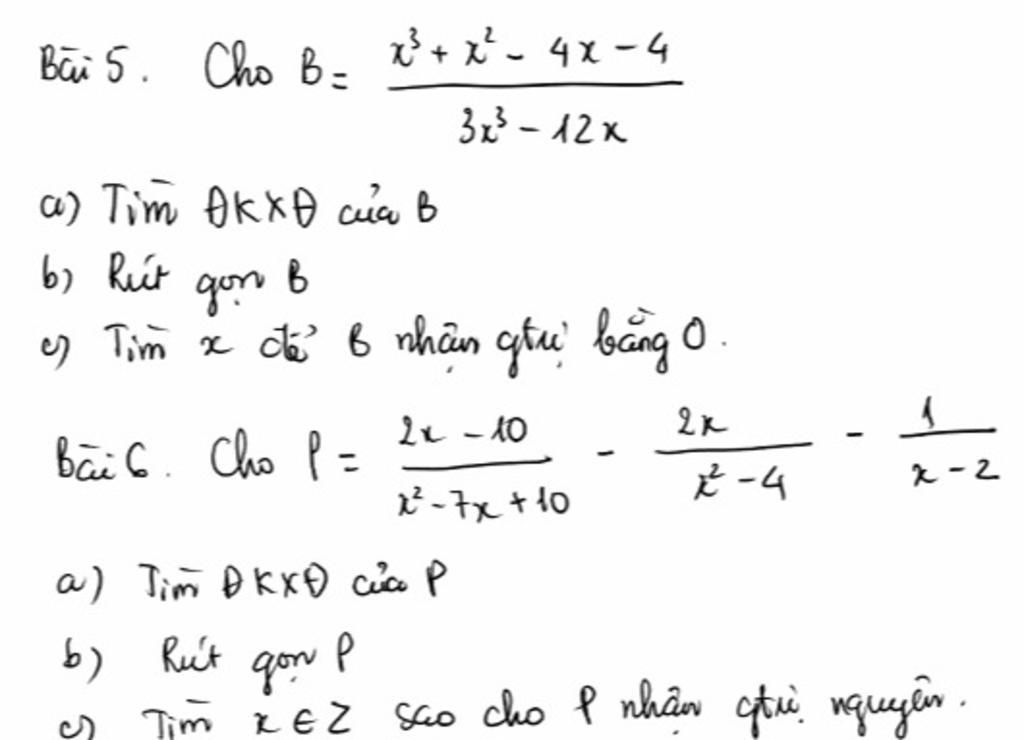 Bài 5. Cho B = (x³ + x² - 4x - 4) / (3x³ - 12x)
a) Tìm ĐKXĐ của B
b) Rút gọn B
c) Tìm x để B nhận gtrị bằng 0.
Bài 6. Cho P = (2x - 10) / (x² - 7x + 10) - 2x / (x² - 4) - 1 / (x - 2)
a) Tìm ĐKXĐ của P
b) Rút gọn P
c) Tìm x ∈ Z sao cho P nhận gtrị nguyên.